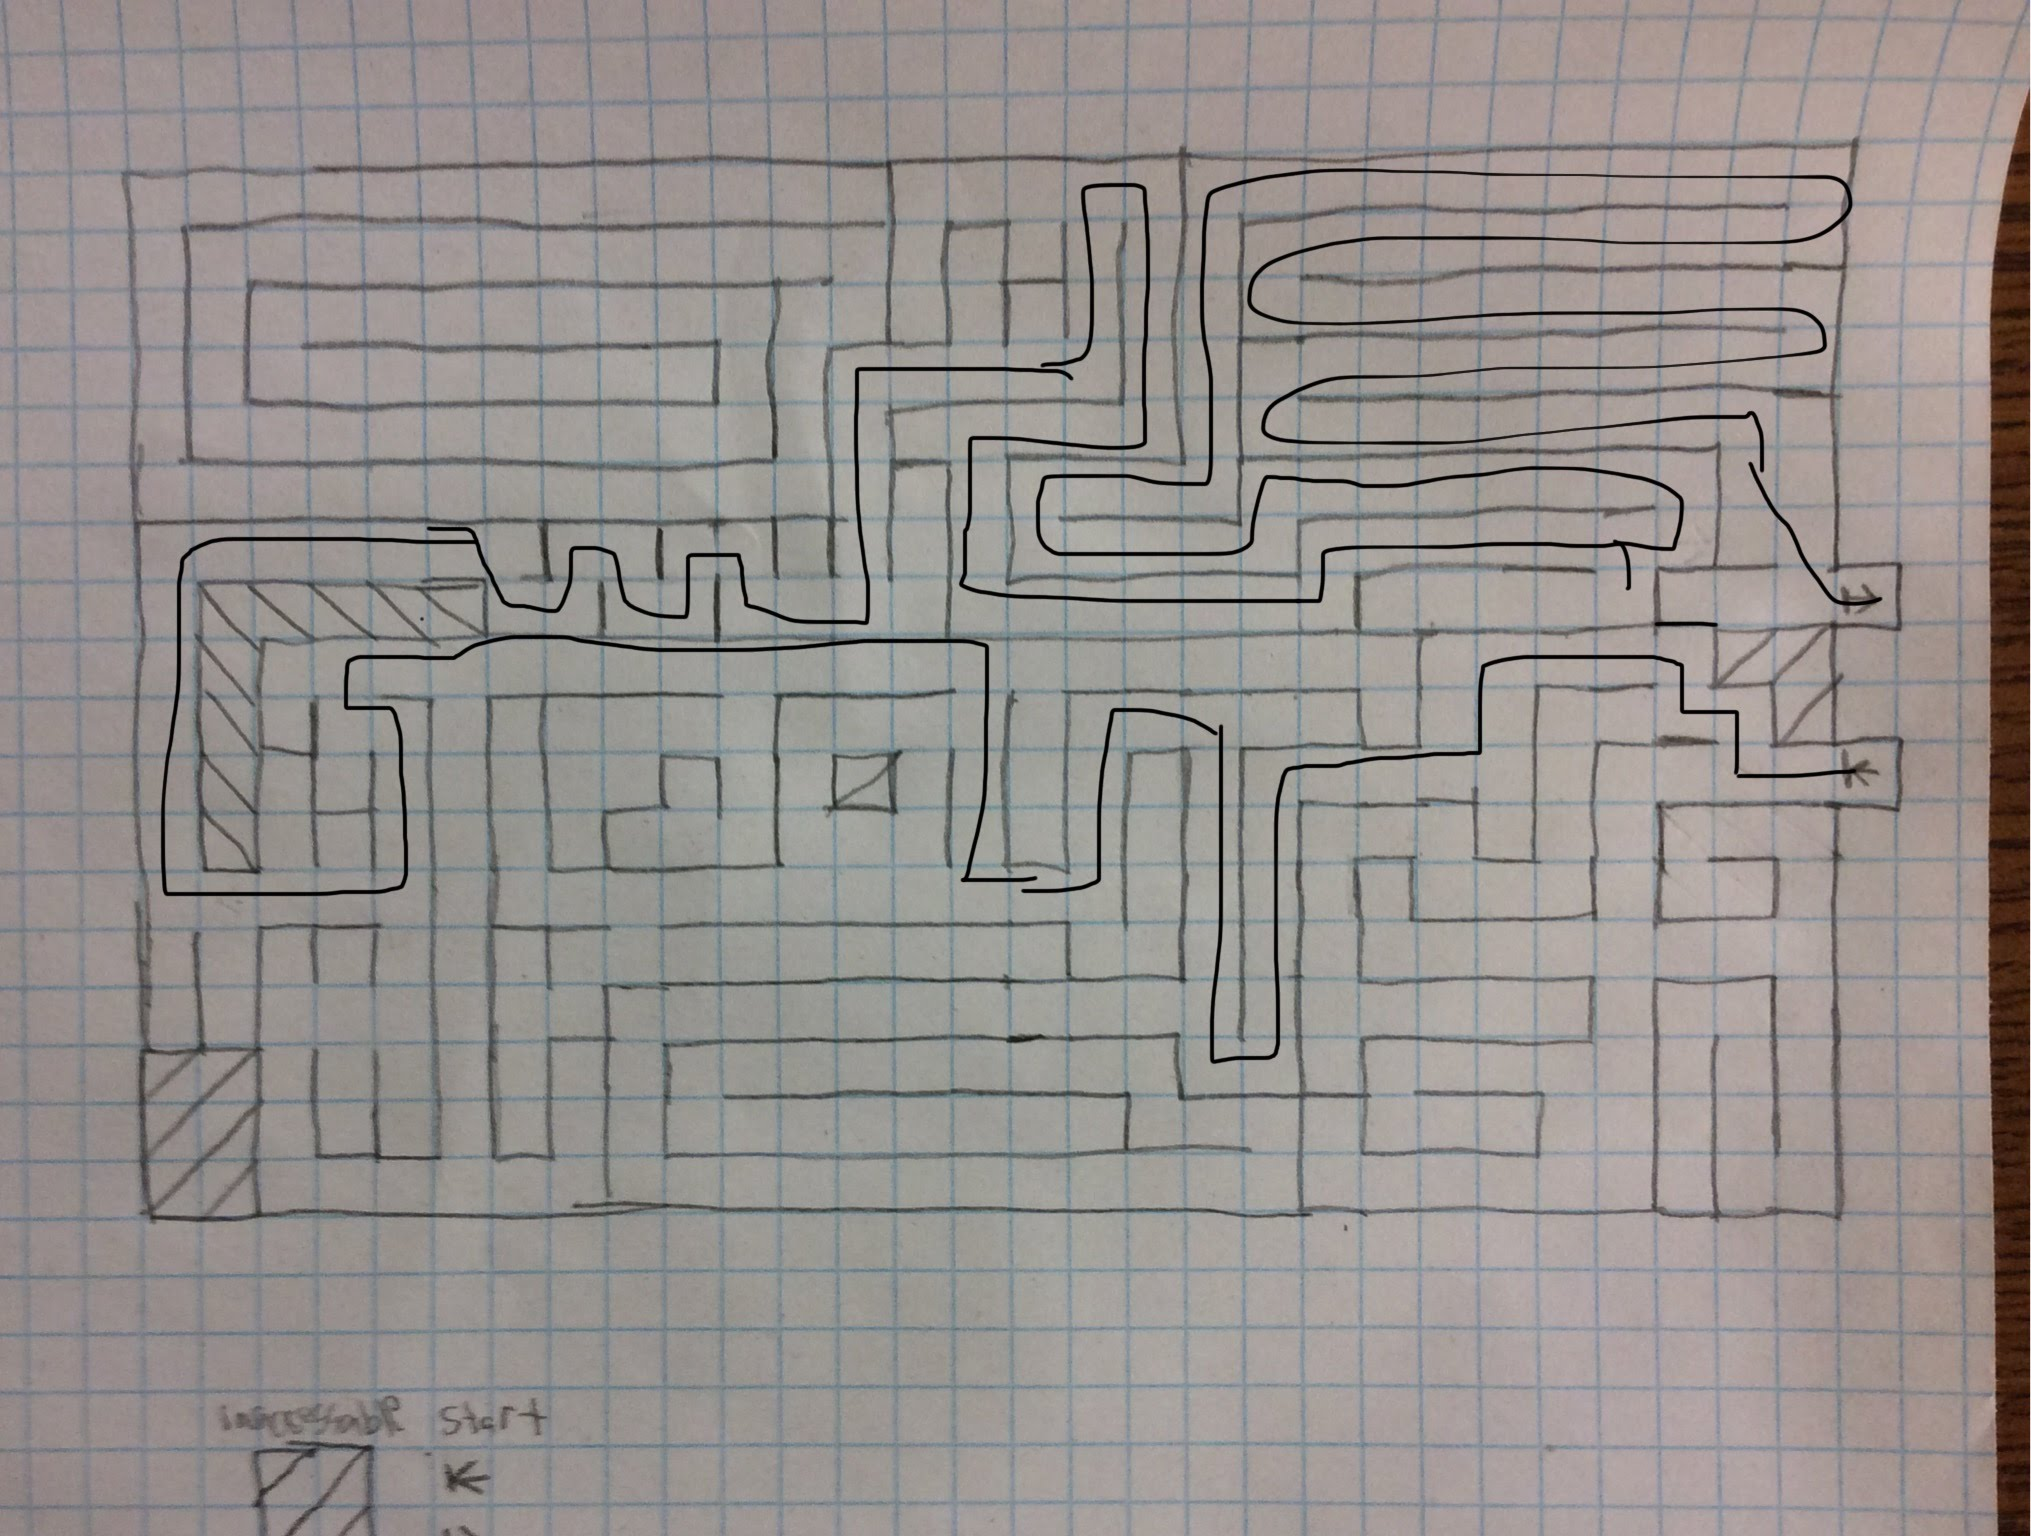 inaccessable Start